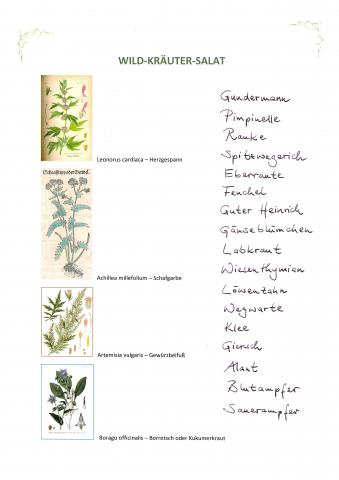 WILD-KRÄUTER-SALAT
Leonorus cardiaca – Herzgespann
Achillea millefolium – Schafgarbe
Artemisia vulgaris – Gewürzbeifuß
Borago officinalis – Borretsch oder Kukumerkraut
Gundermann
Pimpinelle
Rauke
Spitzwegerich
Eberraute
Fenchel
Guter Heinrich
Gänseblümchen
Labkraut
Wiesenthymian
Löwenzahn
Wegwarte
Klee
Giersch
Alant
Blutampfer
Sauerampfer